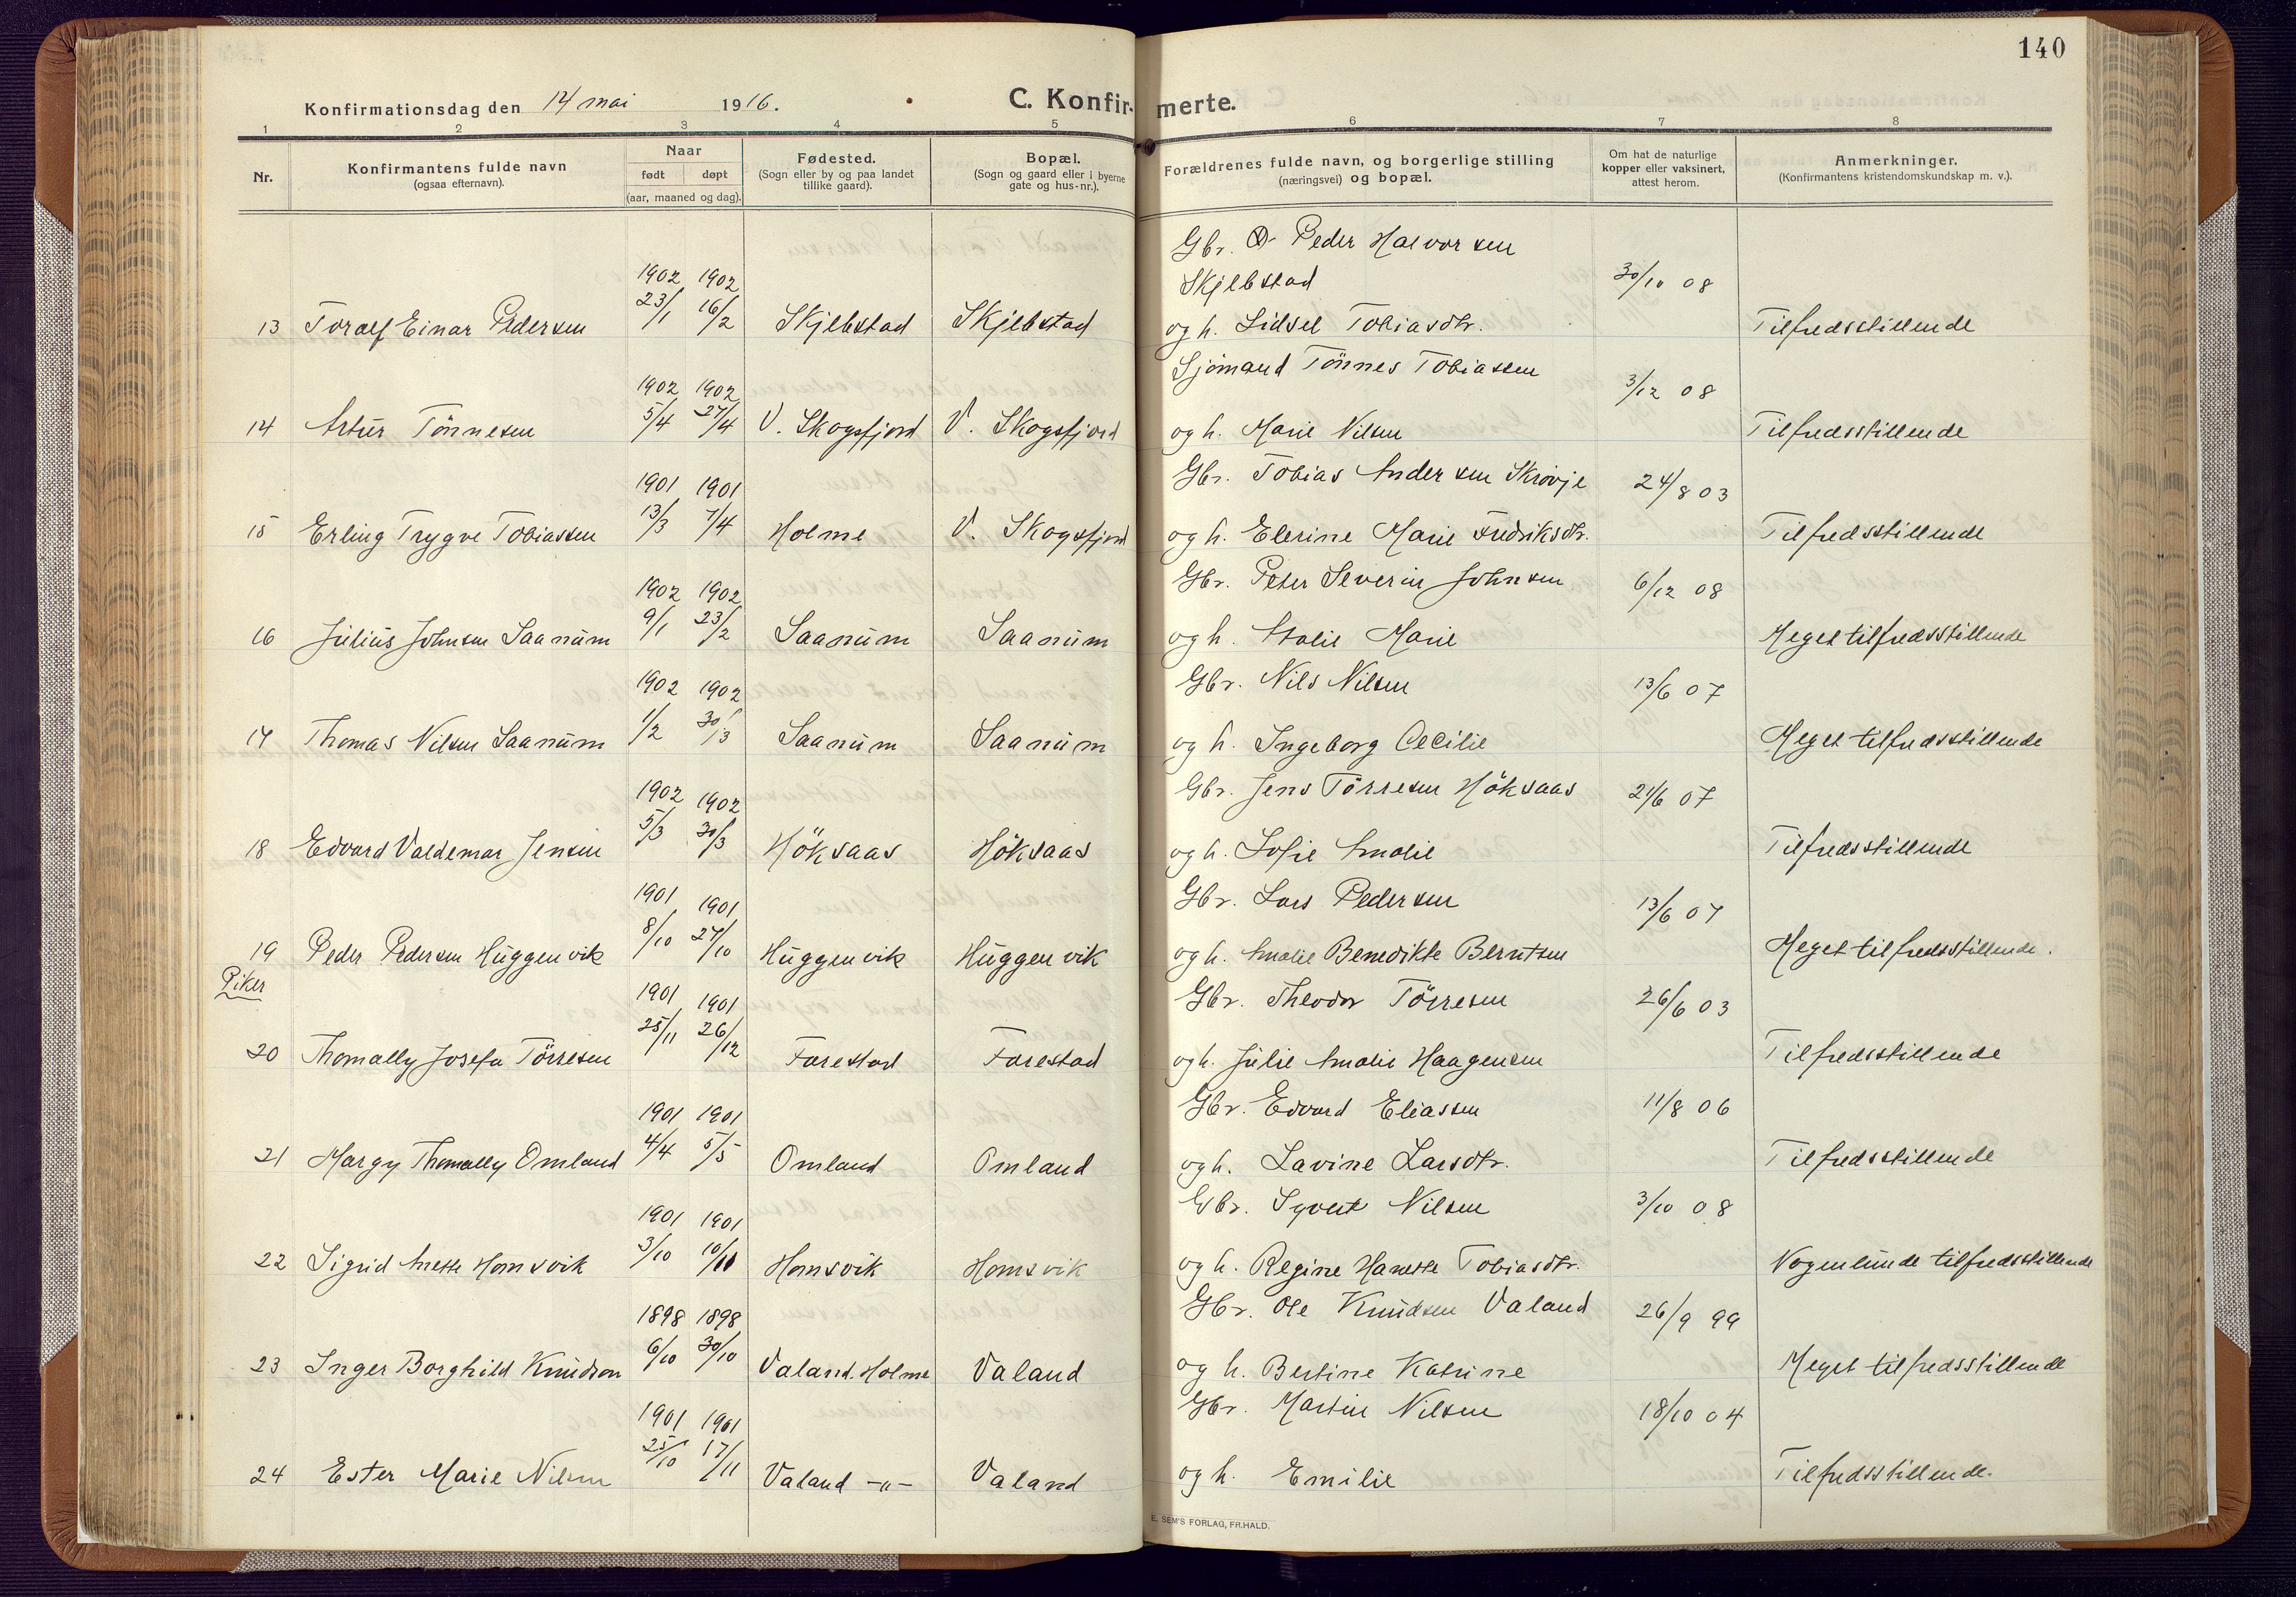 140
Konfirmationsdag den 14 mai 1916.
C. Konfir- merte.
1 2 3 4 5 6 7 8
Nr.
Konfirmantens fulde navn
(ogsaa efternavn).
Naar
født døpt
(aar, maaned og dag).
Fødested.
(Sogn eller by og paa landet
tillike gaard).
Bopæl.
(Sogn og gaard eller i byerne
gate og hus-nr.).
Forældrenes fulde navn, og borgerlige stilling
(næringsvei) og bopæl.
Om hat de naturlige
kopper eller vaksinert,
attest herom.
Anmerkninger.
(Konfirmantens kristendomskundskap m. v.).
Gbr. Peder Halvorsen
1902 1902 Skjelbstad 30/10 08
13 Toralf Einar Pedersen 23/1 16/2 Skjelbstad Skjelbstad og h. Sidsel Tobiasdtr. Tilfredsstillende
1902 1902 Sjömand Tönnes Tobiassen 3/12 08
14 Artur Tönnesen 5/4 27/4 V. Skogsfjord V. Skogsfjord og h. Marie Nilsen Tilfredsstillende
1901 1901 Gbr. Tobias Andersen Skrövje 24/8 03
15 Erling Trygve Tobiassen 13/3 7/4 Holme V. Skogsfjord og h. Elerine Marie Fredriksdtr. Tilfredsstillende
1902 1902 Gbr. Peter Severin Johnsen 6/12 08
16 Julius Johnsen Saanum 9/1 23/2 Saanum Saanum og h. Atalie Marie Meget tilfredsstillende
1902 1902 Gbr. Nils Nilsen 13/6 07
17 Thomas Nilsen Saanum 1/2 30/3 Saanum Saanum og h. Ingeborg Cecilie Meget tilfredsstillende
1902 1902 Gbr. Jens Törresen Höksaas 21/6 07
18 Edvard Valdemar Jensen 5/3 30/3 Höksaas Höksaas og h. Sofie Amalie Tilfredsstillende
1901 1901 Gbr. Lars Pedersen 13/6 07
19 Peder Pedersen Huggenvik 8/10 27/10 Huggenvik Huggenvik og h. Amalie Benedikte Berntsen Meget tilfredsstillende.
Piker
1901 1901 Gbr. Theodor Törresen 26/6 03
20 Thomally Josefa Törresen 25/11 26/12 Farestad Farestad og h. Julie Amalie Haagensen Tilfredsstillende
1901 1901 Gbr. Edvard Eliassen 11/8 06
21 Margy Thomally Omland 4/4 5/5 Omland Omland og h. Lavine Larsdtr. Tilfredsstillende
1901 1901 Gbr. Syvert Nilsen 3/10 08
22 Sigrid Anette Homsvik 3/10 10/11 Homsvik Homsvik og h. Regine Hanette Tobiasdtr. Nogenlunde tilfredsstillende
1898 1898 Gbr. Ole Knudsen Valand 26/9 99
23 Inger Borghild Knudsen 6/10 30/10 Valand. Holme Valand og h. Bertine Katrine Meget tilfredsstillende
1901 1901 Gbr. Martin Nilsen 18/10 04
24 Ester Marie Nilsen 25/10 17/11 Valand -"- Valand og h. Emilie Tilfredsstillende.
E. SEM'S FORLAG, FR.HALD.